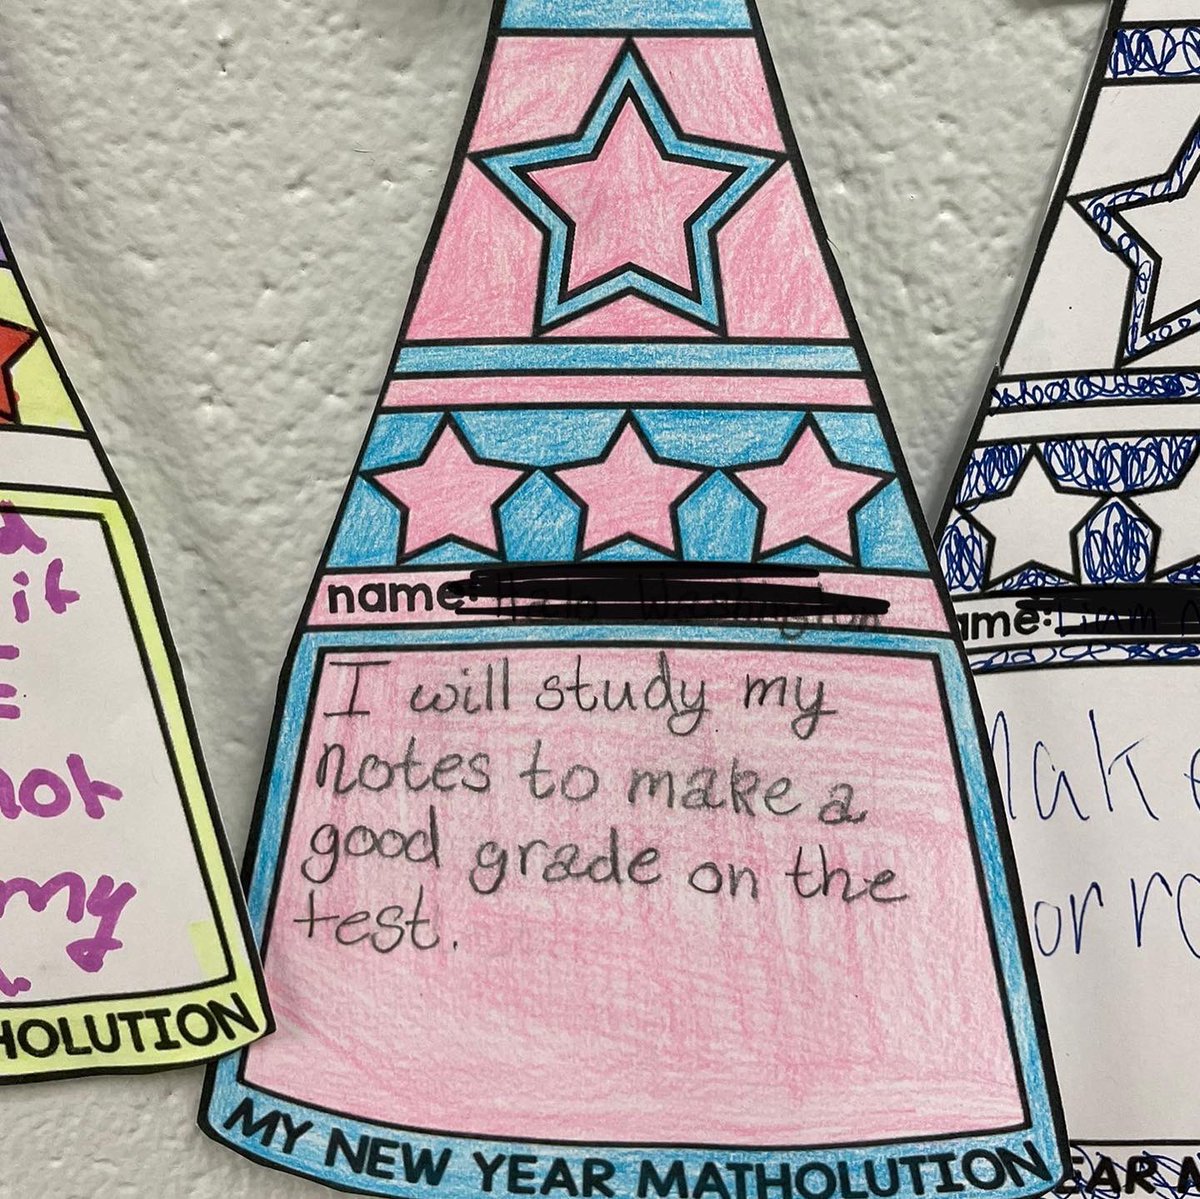 it
not
my
HOLUTION
name:
I will study my
notes to make a
good grade on the
test.
MY NEW YEAR MATHOLUTION
ame:
Make
orre
EAR M